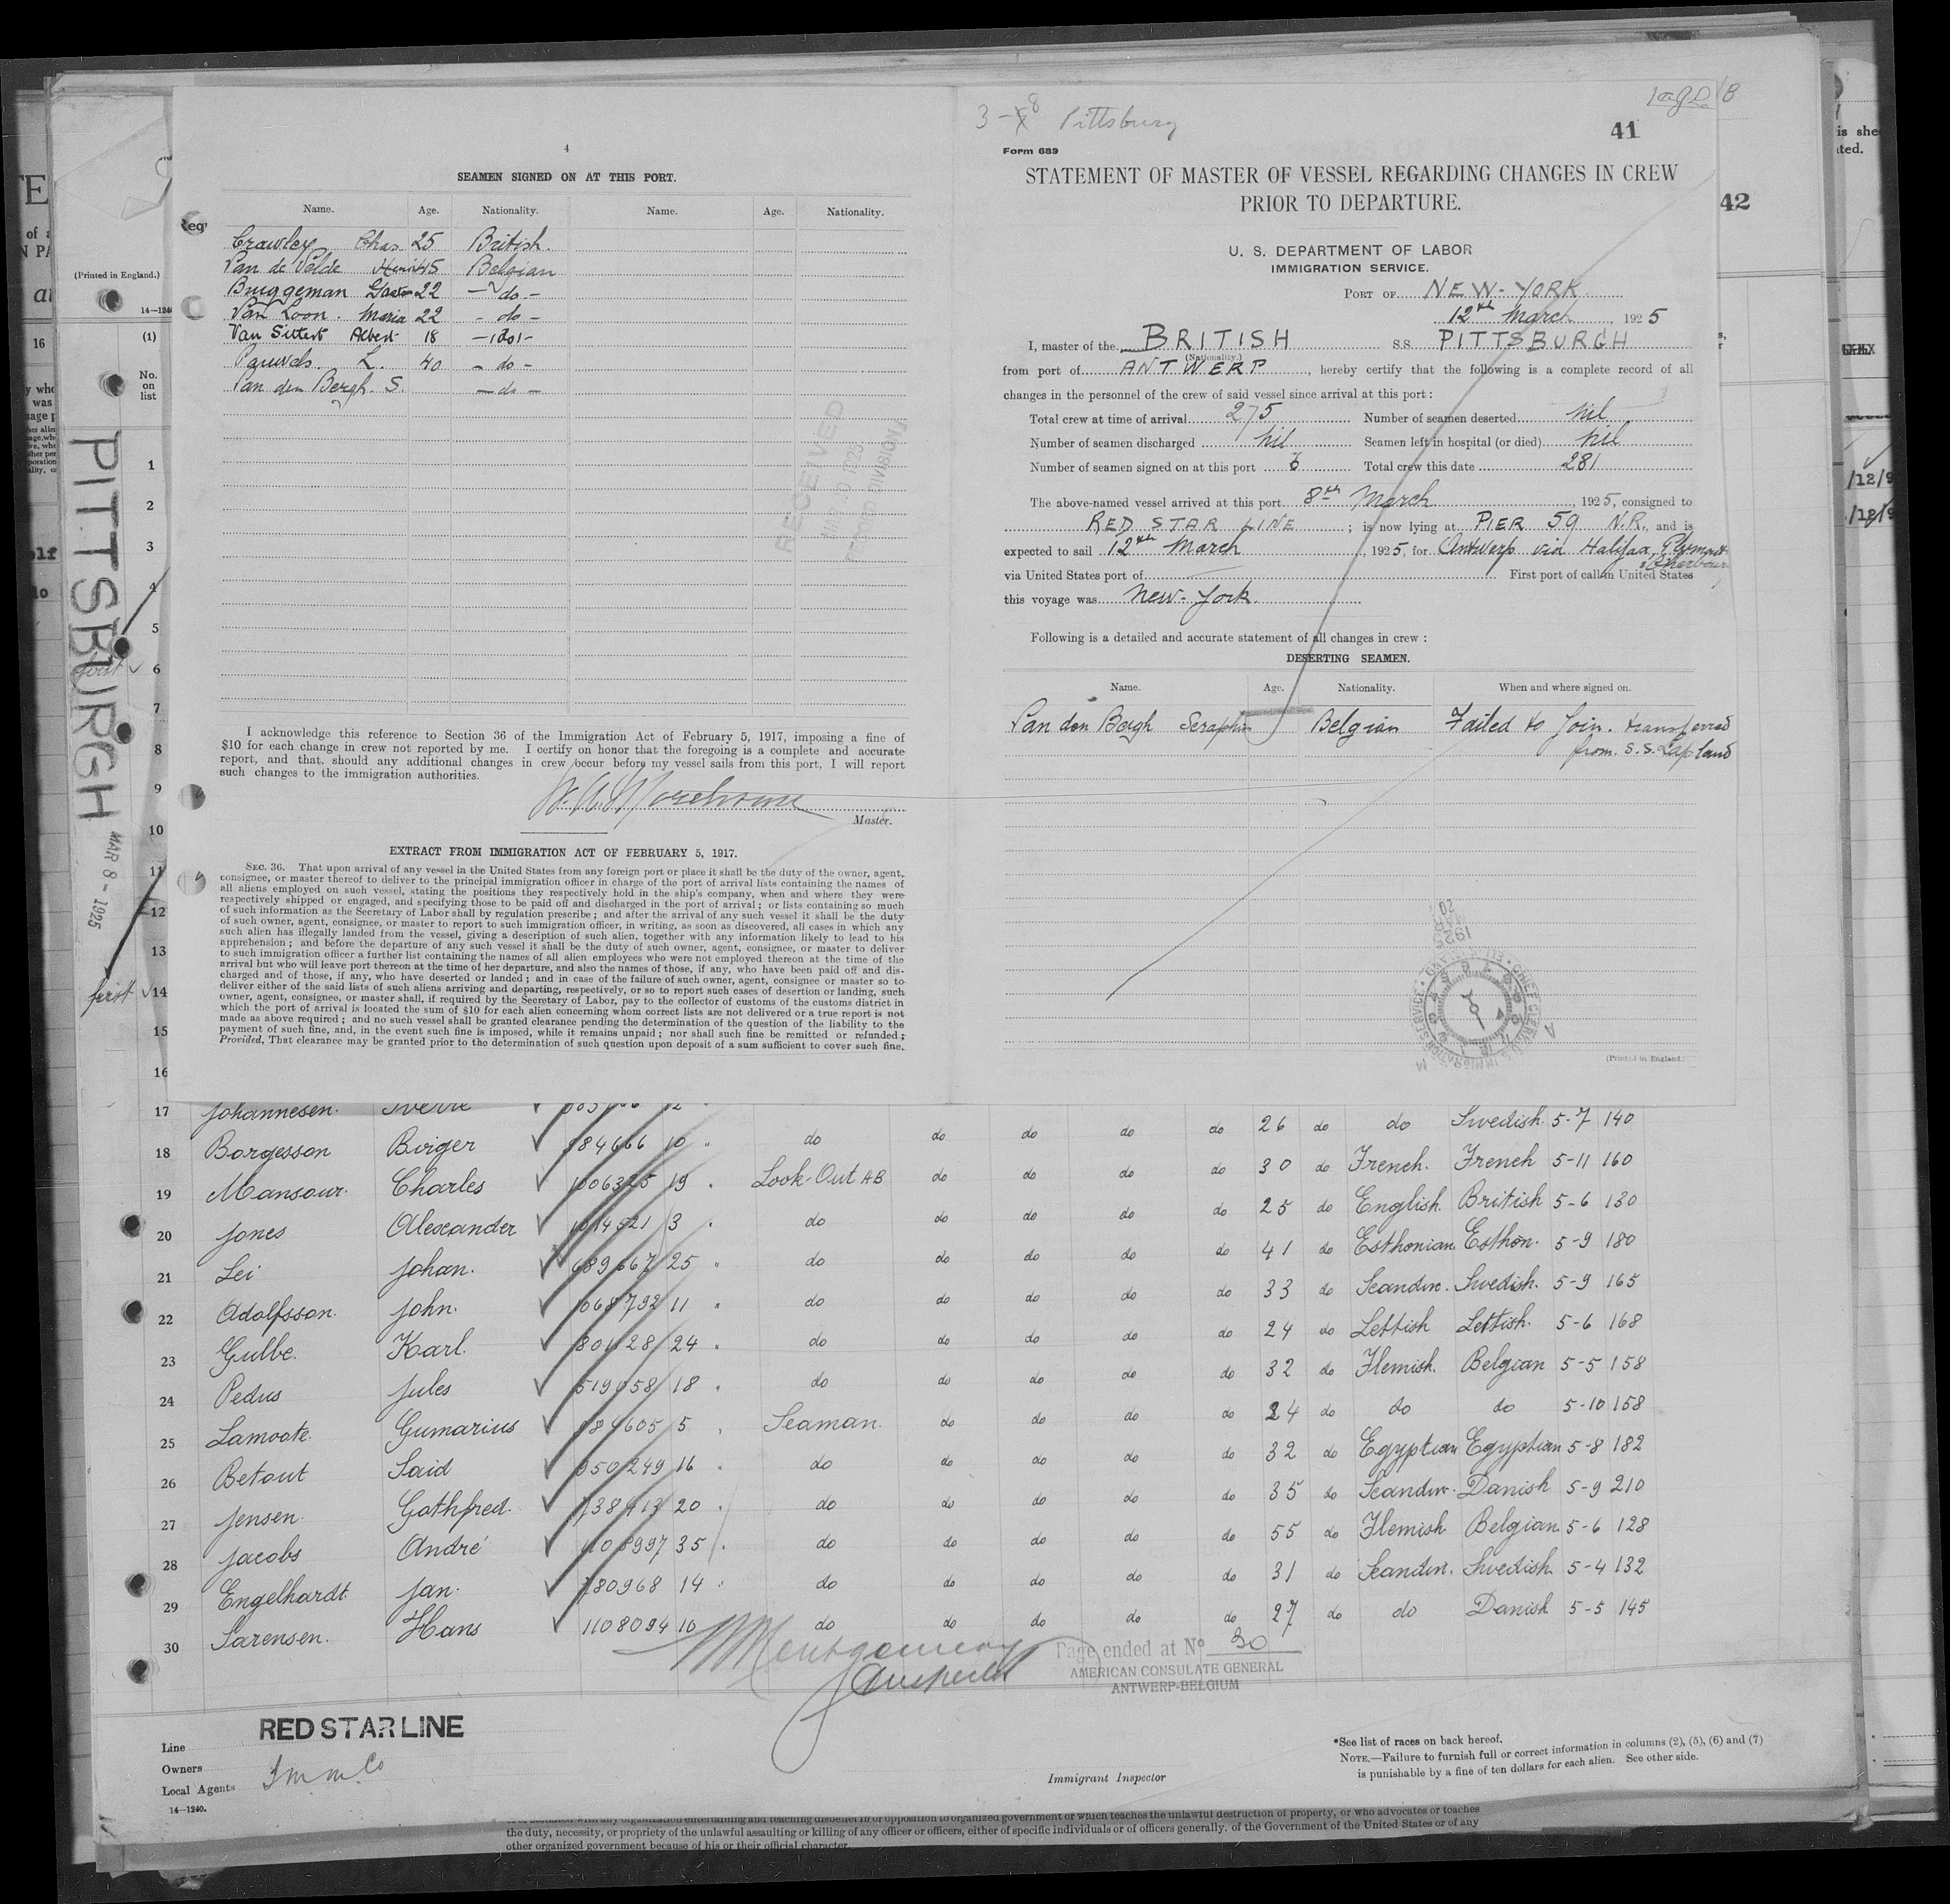 4
SEAMEN SIGNED ON AT THIS PORT.
Name. Age. Nationality. Name. Age. Nationality.
Crawley Chas 25 British.
Van de Velde Henri 45 Belgian
Bruggeman Gaston 22 - do -
Van Loon. Maria 22 - do -
Van Sittert Albert 18 - do -
Pauwels. L. 40 - do -
Van den Bergh. S. - do -
RECEIVED
I acknowledge this reference to Section 36 of the Immigration Act of February 5, 1917, imposing a fine of
$10 for each change in crew not reported by me. I certify on honor that the foregoing is a complete and accurate
report, and that, should any additional changes in crew occur before my vessel sails from this port, I will report
such changes to the immigration authorities.
Master.
EXTRACT FROM IMMIGRATION ACT OF FEBRUARY 5, 1917.
SEC. 36. That upon arrival of any vessel in the United States from any foreign port or place it shall be the duty of the owner, agent,
consignee, or master thereof to deliver to the principal immigration officer in charge of the port of arrival lists containing the names of
all aliens employed on such vessel, stating the positions they respectively hold in the ship's company, when and where they were
respectively shipped or engaged, and specifying those to be paid off and discharged in the port of arrival; or lists containing so much
of such information as the Secretary of Labor shall by regulation prescribe; and after the arrival of any such vessel it shall be the duty
of such owner, agent, consignee, or master to report to such immigration officer, in writing, as soon as discovered, all cases in which any
such alien has illegally landed from the vessel, giving a description of such alien, together with any information likely to lead to his
apprehension; and before the departure of any such vessel it shall be the duty of such owner, agent, consignee, or master to deliver
to such immigration officer a further list containing the names of all alien employees who were not employed thereon at the time of the
arrival but who will leave port thereon at the time of her departure, and also the names of those, if any, who have been paid off and dis-
charged and of those, if any, who have deserted or landed; and in case of the failure of such owner, agent, consignee or master so to
deliver either of the said lists of such aliens arriving and departing, respectively, or so to report such cases of desertion or landing, such
owner, agent, consignee, or master shall, if required by the Secretary of Labor, pay to the collector of customs of the customs district in
which the port of arrival is located the sum of $10 for each alien concerning whom correct lists are not delivered or a true report is not
made as above required; and no such vessel shall be granted clearance pending the determination of the question of the liability to the
payment of such fine, and, in the event such fine is imposed, while it remains unpaid; nor shall such fine be remitted or refunded;
Provided, That clearance may be granted prior to the determination of such question upon deposit of a sum sufficient to cover such fine.
3-8 Pittsburg
41
Form 689
STATEMENT OF MASTER OF VESSEL REGARDING CHANGES IN CREW
PRIOR TO DEPARTURE.
U. S. DEPARTMENT OF LABOR
IMMIGRATION SERVICE.
PORT OF NEW-YORK
12th March, 1925
I, master of the BRITISH S.S. PITTSBURGH
(Nationality.)
from port of ANTWERP, hereby certify that the following is a complete record of all
changes in the personnel of the crew of said vessel since arrival at this port:
Total crew at time of arrival 275 Number of seamen deserted nil
Number of seamen discharged nil Seamen left in hospital (or died) nil
Number of seamen signed on at this port 6 Total crew this date 281
The above-named vessel arrived at this port 8th March 1925, consigned to
RED STAR LINE; is now lying at PIER 59 N.R. and is
expected to sail 12th March, 1925, for Antwerp via Halifax, Plymouth
& Cherbourg
via United States port of First port of call in United States
this voyage was New-York
Following is a detailed and accurate statement of all changes in crew:
DESERTING SEAMEN.
Name. Age. Nationality. When and where signed on.
Van den Bergh Seraphin Belgian Failed to Join. transferred
from. S.S. Lapland
(Printed in England.)
42
(Printed in England.)
14-1240
(1)
No.
on
list
PITTSBURGH
MAR 8 - 1925
1
2
3
4
5
6
7
8
9
10
11
12
13
first 14
15
16
17 Johannesen. Sverre 26 do do Swedish. 5-7 140
18 Borgesson Birger 10 do do do do do 30 do French. French 5-11 160
19 Mansour. Charles 19 Look-Out AB do do do do 25 do English. British 5-6 130
20 Jones Alexander 3 do do do do do 41 do Esthonian. Esthon. 5-9 180
21 Lei Johan. 25 do do do do do 33 do Scandin. Swedish. 5-9 165
22 Adolfsson. John. 11 do do do do do 24 do Lettish Lettish. 5-6 168
23 Gulbe. Karl. 24 do do do do do 32 do Flemish. Belgian 5-5 158
24 Pedus Jules 18 do do do do do 24 do do do 5-10 158
25 Lamoote. Gumarius 5 Seaman. do do do do 32 do Egyptian Egyptian 5-8 182
26 Betout Said 16 do do do do do 35 do Scandin. Danish 5-9 210
27 Jensen. Gothfred. 20 do do do do do 55 do Flemish Belgian 5-6 128
28 Jacobs André 35 do do do do do 31 do Scandin. Swedish. 5-4 132
29 Engelhardt Jan. 780968 14 do do do do do 27 do do Danish 5-5 145
30 Sarensen. Hans 1108094 10 do do do do do
Montgomery
Page ended at No 30
AMERICAN CONSULATE GENERAL
ANTWERP-BELGIUM
Line RED STAR LINE
Owners
Local Agents I m m Co
14-1240.
Immigrant Inspector
*See list of races on back hereof.
NOTE.—Failure to furnish full or correct information in columns (2), (5), (6) and (7)
is punishable by a fine of ten dollars for each alien. See other side.
the duty, necessity, or propriety of the unlawful assaulting or killing of any officer or officers, either of specific individuals or of officers generally, of the Government of the United States or of any
other organized government because of his or their official character.